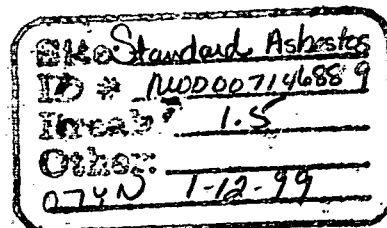 Site: Standard Asbestos
ID # MOD007146889
Break: 1.5
Other:
074N 1-12-99